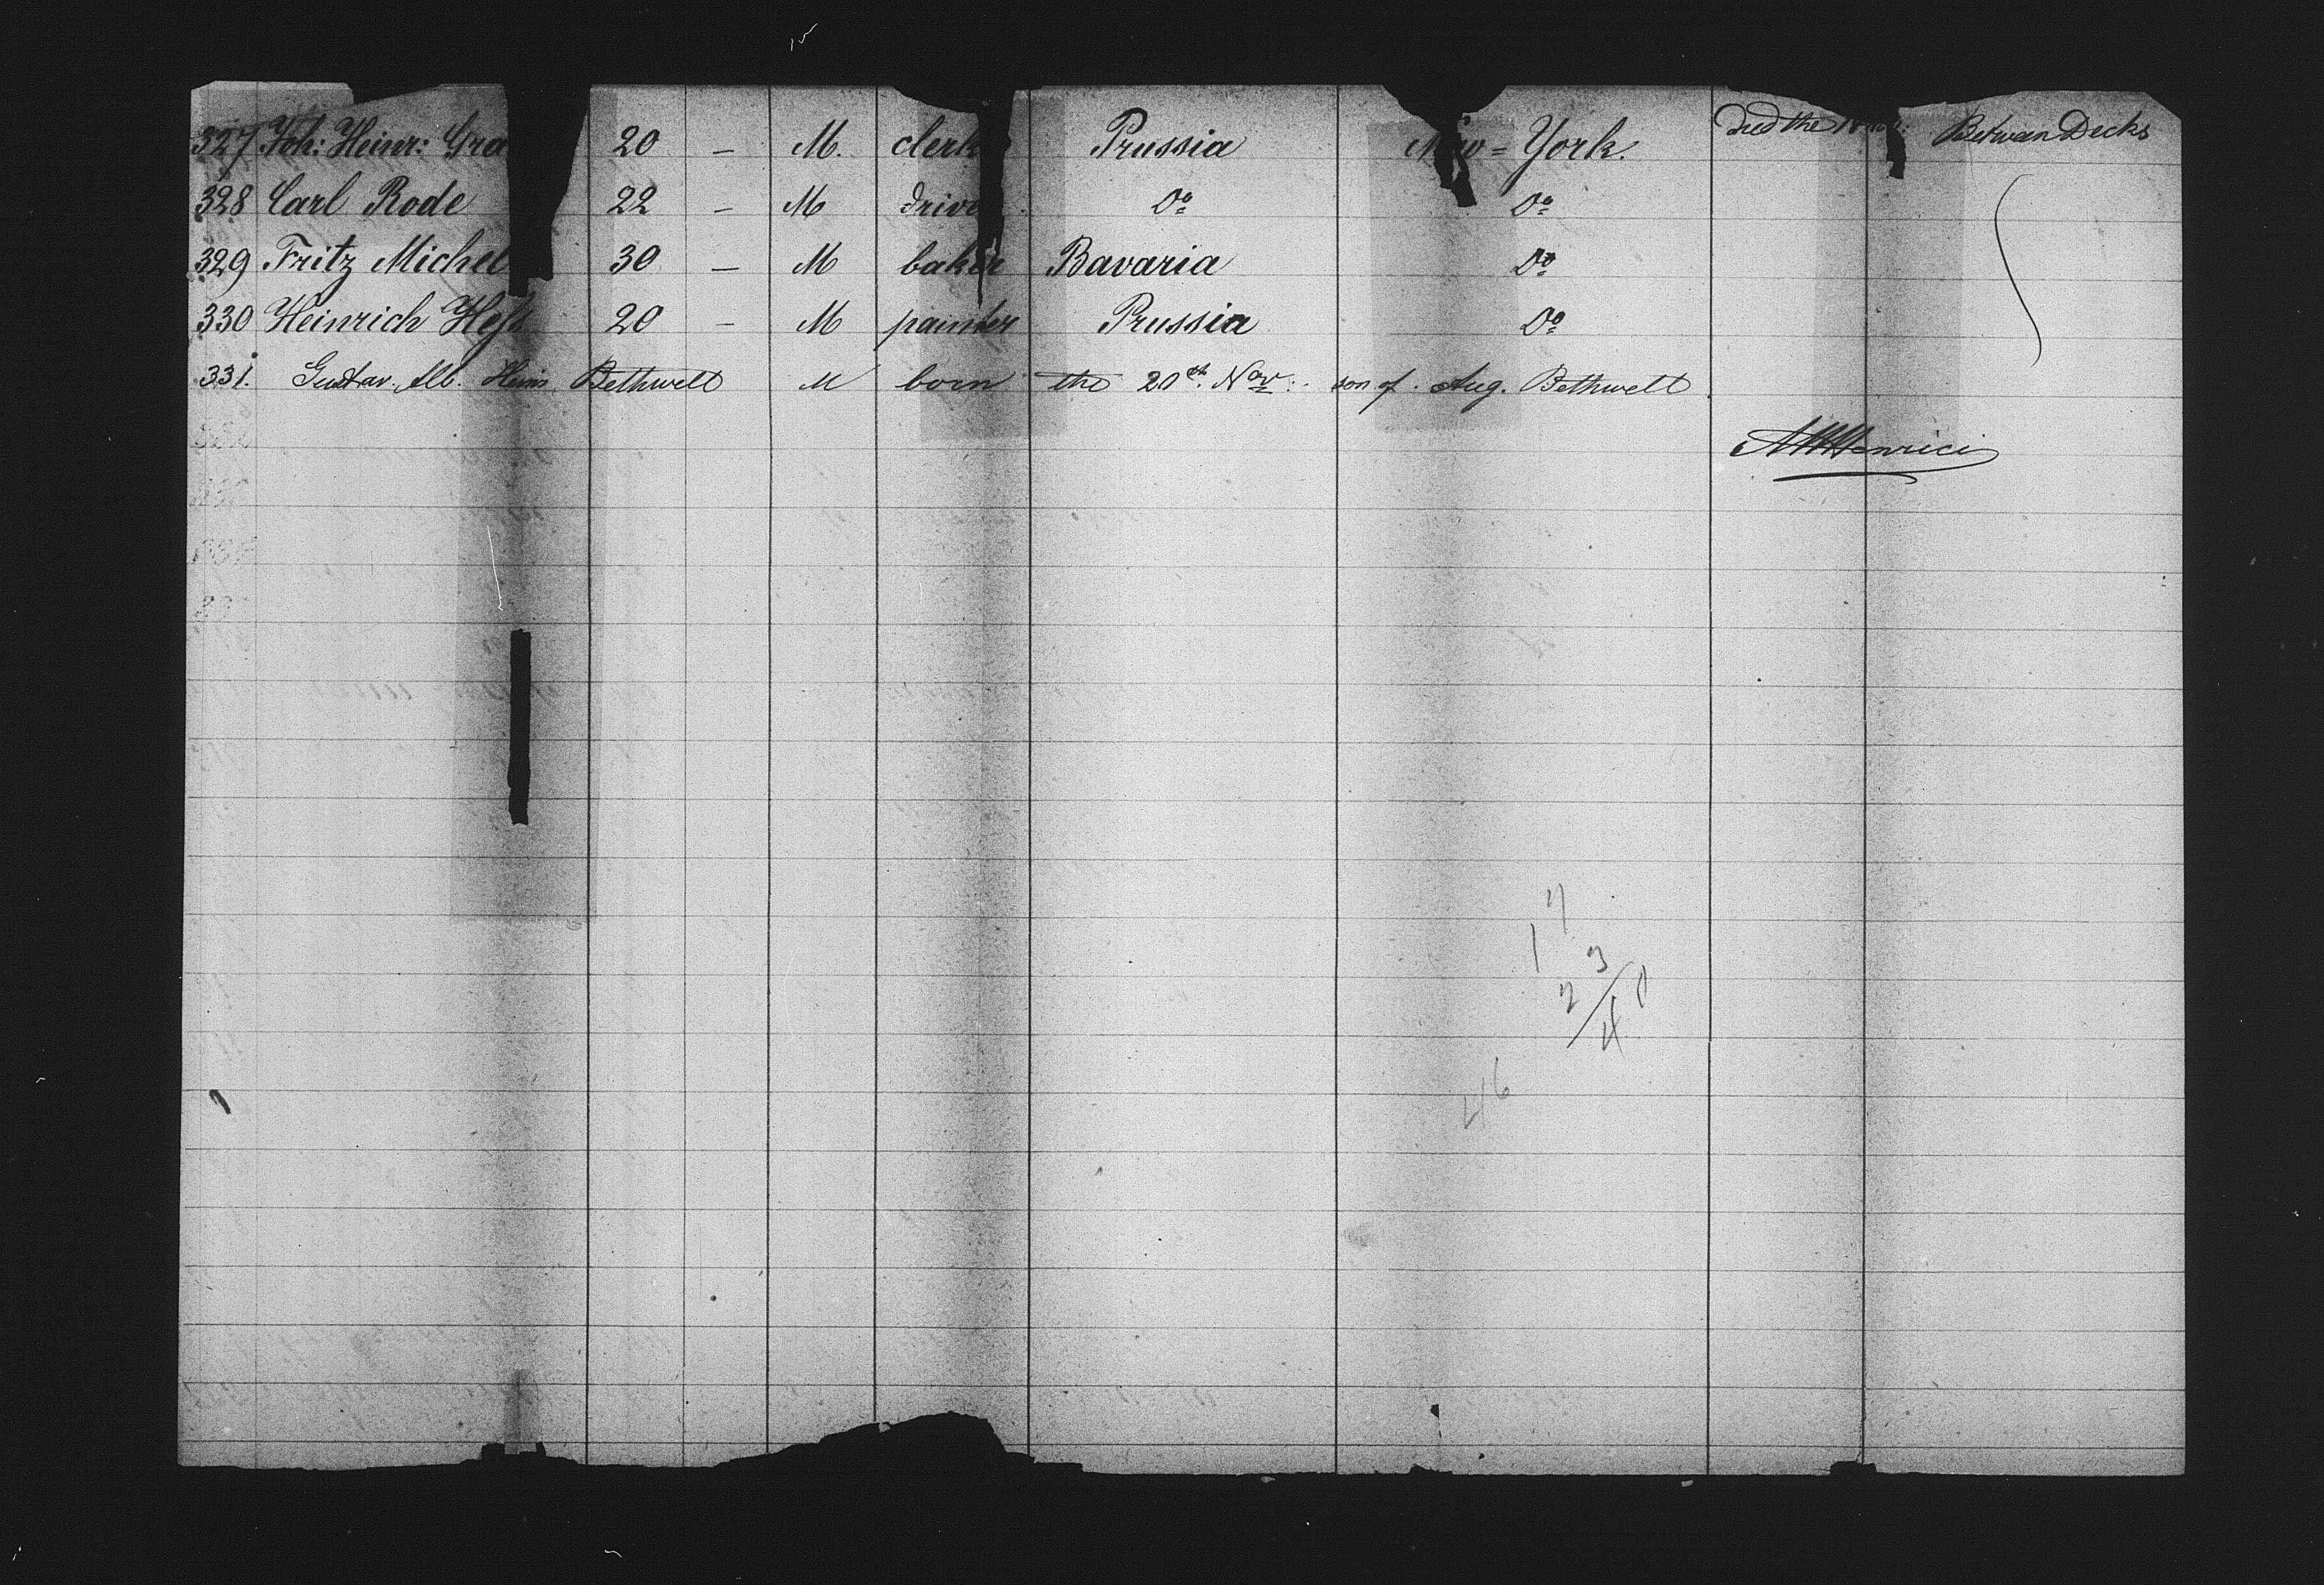 327 Joh: Heinr: Gra 20 – M. clerk Prussia New = York. died the Betwen Decks
328 Carl Rode 22 – M driver Do Do
329 Fritz Michel 30 – M baker Bavaria Do
330 Heinrich Heſs 20 – M painter Prussia Do
331. Gustav. Alb. Heinr Bethwell M born the 20th Nov: son of Aug. Bethwell
Henrici
7
1
3
2
4
46